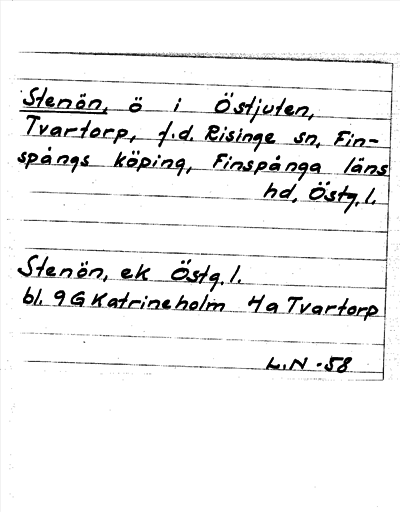 Stenön, ö i Östjuten,
Tvartorp, f.d. Risinge sn, Fin-
spångs köping, Finspånga läns
hd, Östg.l.
Stenön, ek Östg.l.
bl. 9G Katrineholm 4a Tvartorp
L.N -58